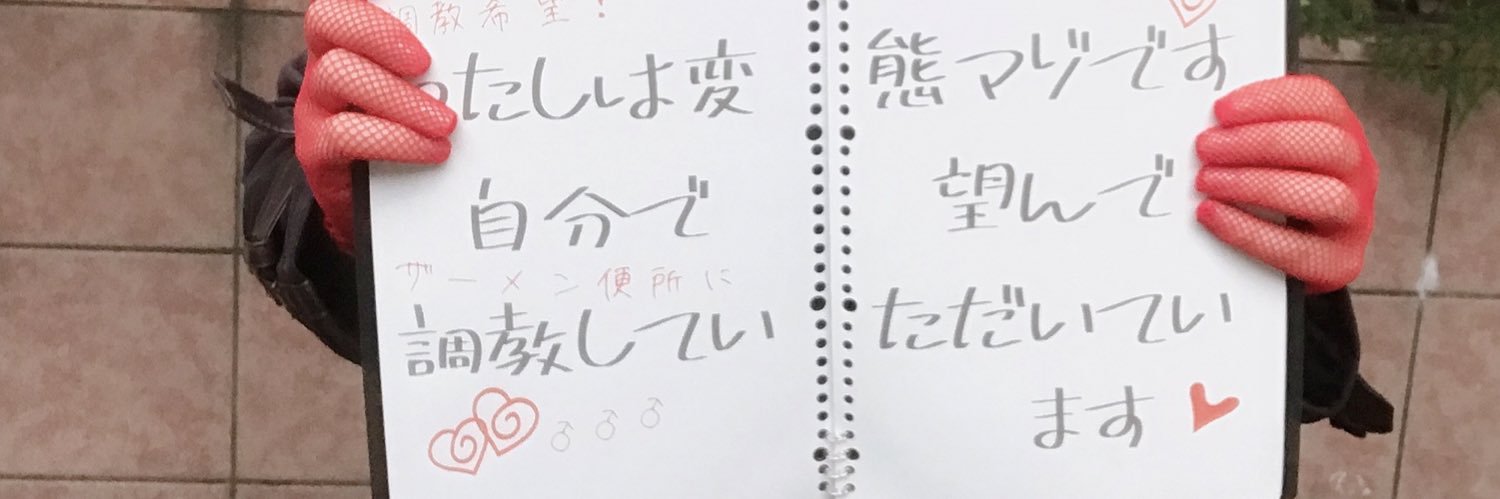 調教希望!
わたしは変態マゾです
自分で望んで
ザーメン便所に
調教していただいてい
ます♥
♂♂♂